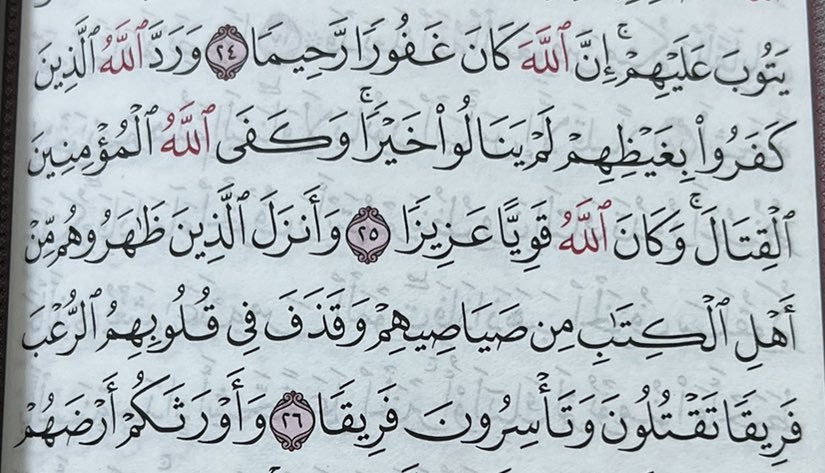 يَتُوبَ عَلَيْهِمْ ۚ إِنَّ ٱللَّهَ كَانَ غَفُورًا رَّحِيمًا ٢٤ وَرَدَّ ٱللَّهُ ٱلَّذِينَ
كَفَرُوا۟ بِغَيْظِهِمْ لَمْ يَنَالُوا۟ خَيْرًا ۚ وَكَفَى ٱللَّهُ ٱلْمُؤْمِنِينَ
ٱلْقِتَالَ ۚ وَكَانَ ٱللَّهُ قَوِيًّا عَزِيزًا ٢٥ وَأَنزَلَ ٱلَّذِينَ ظَـٰهَرُوهُم مِّنْ
أَهْلِ ٱلْكِتَـٰبِ مِن صَيَاصِيهِمْ وَقَذَفَ فِى قُلُوبِهِمُ ٱلرُّعْبَ
فَرِيقًا تَقْتُلُونَ وَتَأْسِرُونَ فَرِيقًا ٢٦ وَأَوْرَثَكُمْ أَرْضَهُمْ